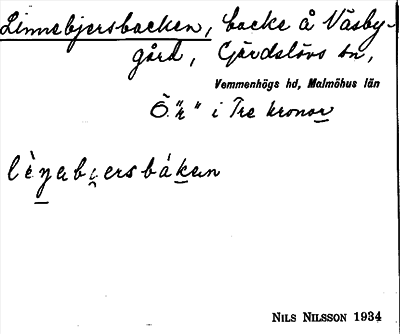 Linnebjersbacken, backe å Väsby-
gård, Gärdslövs sn,
Vemmenhögs hd, Malmöhus län
Ö. "k" i Tre kronor
NILS NILSSON 1934